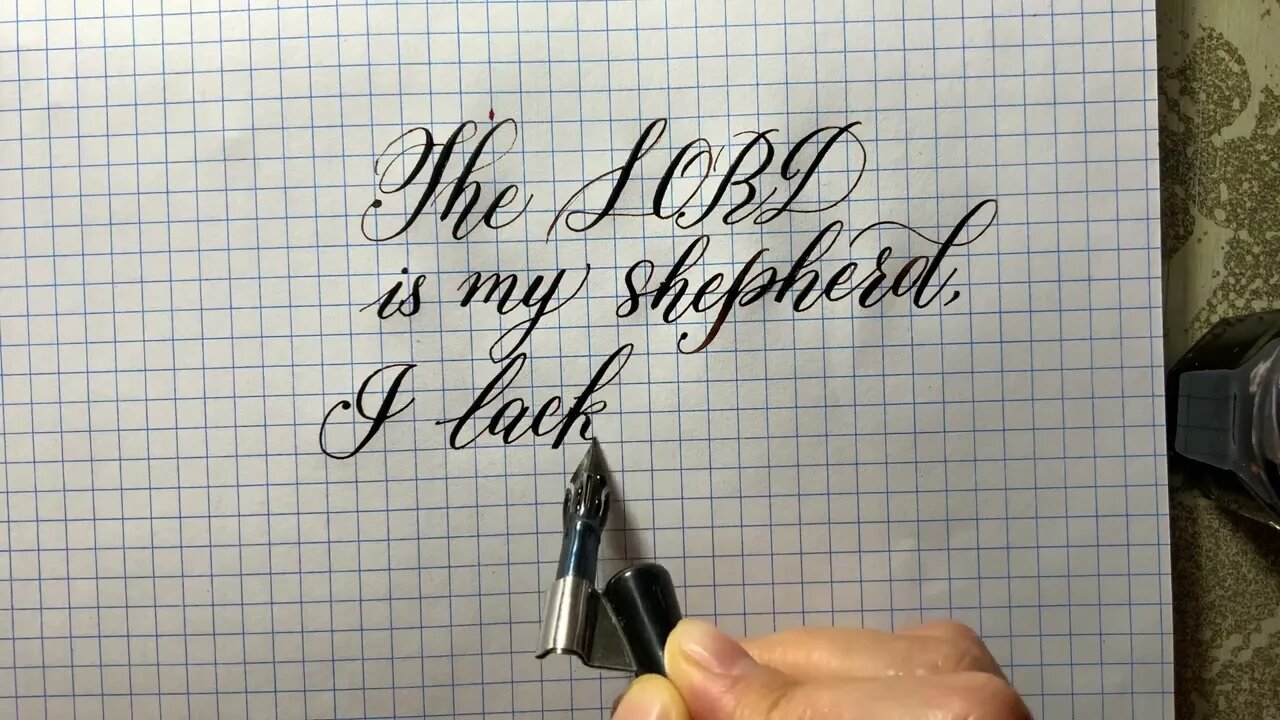 The LORD
is my shepherd,
I lack